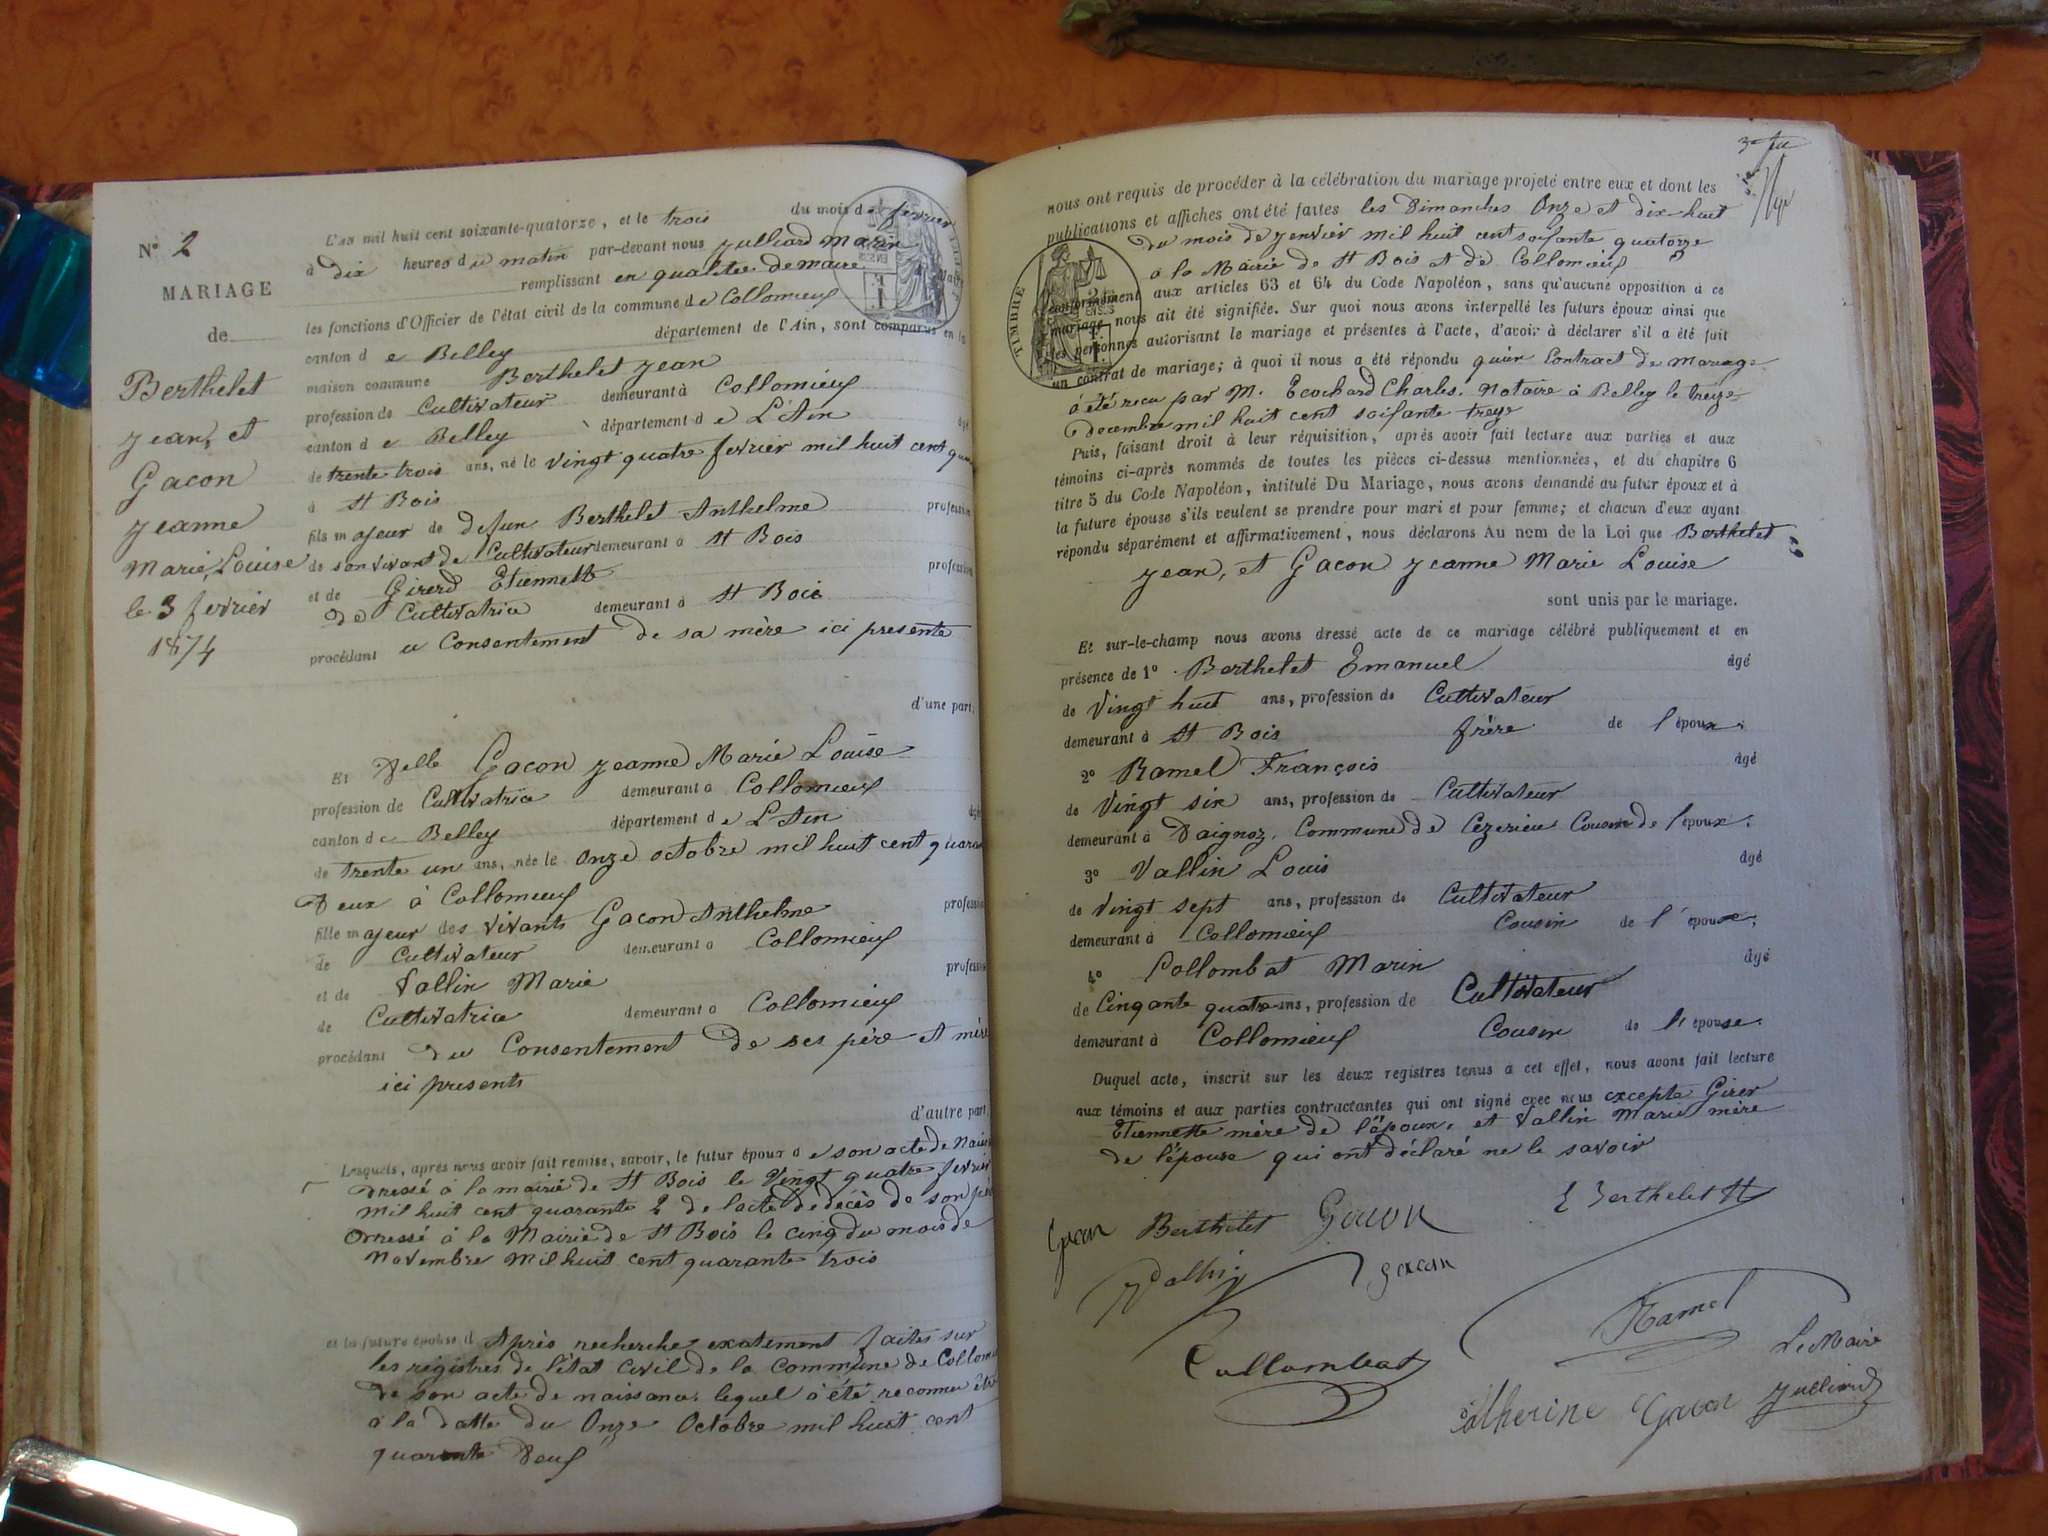 N° 2
MARIAGE
de
Berthelet
jean, et
Gacon
jeanne
Marie, Louise
le 3 fevrier
1874
L'an mil huit cent soixante-quatorze, et le trois du mois de fevrier
à dix heures du matin par-devant nous julliard Marin
remplissant en qualitée de maire
les fonctions d'Officier de l'état civil de la commune de Collomieux
canton de Belley département de l'Ain, sont comparus en la
maison commune Berthelet jean
profession de Cultivateur demeurant à Collomieux
canton de Belley département de L'Ain âgé
de trente trois ans, né le vingt quatre fevrier mil huit cent
à St Bois
fils majeur de defun Berthelet Anthelme profession
de son vivant de Cultivateur demeurant à St Bois
et de Girerd Etiennette profession
de Cultivatrice demeurant à St Bois
procédant du Consentement de sa mère ici presente
d'une part,
Et Delle Gacon jeanne Marie Louise
profession de Cultivatrice demeurant à Collomieux
canton de Belley département de L'Ain âgée
de trente un ans, née le onze octobre mil huit cent
Deux à Collomieux
fille majeur des vivants Gacon Anthelme profession
de Cultivateur demeurant à Collomieux
et de Vallin Marie profession
de Cultivatrice demeurant à Collomieux
procédant du Consentement de ses père et mère
ici presents
d'autre part,
Lesquels, après nous avoir fait remise, savoir, le futur époux de son acte de
Dressé à la mairie de St Bois le Vingt quatre fevrier
mil huit cent quarante & de lacte de décès de son
Dressé à la Mairie de St Bois le cinq du mois de
Novembre Mil huit cent quarante trois
et la future épouse d Après recherches exatement faites sur
les régistres de l'état Civil de la Commune de
de son acte de naissance, lequel à été reconnu
à la datte du Onze Octobre mil huit cent
quarante Deux
3e
nous ont requis de procéder à la célébration du mariage projeté entre eux et dont les
publications et affiches ont été faites les Dimanches Onze et dix huit
du mois de jenvier mil huit cent soixante quatorze
à la Mairie de St Bois et de Collomieux
TIMBRE
conformément aux articles 63 et 64 du Code Napoléon, sans qu'aucune opposition à ce
mariage nous ait été signifiée. Sur quoi nous avons interpellé les futurs époux ainsi que
les personnes autorisant le mariage et présentes à l'acte, d'avoir à déclarer s'il a été fait
un contrat de mariage; à quoi il nous a été répondu qu'un Contract de Mariage
à été recu par M. Ecochard Charles, Notaire à Belley le treize
decembre mil huit cent soixante treize
Puis, faisant droit à leur réquisition, après avoir fait lecture aux parties et aux
témoins ci-après nommés de toutes les pièces ci-dessus mentionnées, et du chapitre 6
titre 5 du Code Napoléon, intitulé Du Mariage, nous avons demandé au futur époux et à
la future épouse s'ils veulent se prendre pour mari et pour femme; et chacun d'eux ayant
répondu séparément et affirmativement, nous déclarons Au nom de la Loi que Berthelet
jean, et Gacon jeanne Marie Louise
sont unis par le mariage.
Et sur-le-champ nous avons dressé acte de ce mariage célébré publiquement et en
présence de 1° Berthelet Emanuel âgé
de Vingt huit ans, profession de Cultivateur
demeurant à St Bois frère de l'époux;
2° Ramel François âgé
de Vingt six ans, profession de Cultivateur
demeurant à Vaignoz, Commune de Cezerieu Cousin de l'époux;
3° Vallin Louis âgé
de Vingt sept ans, profession de Cultivateur
demeurant à Collomieux Cousin de l'épouse;
4° Collombat Marin âgé
de Cinqante quatre ans, profession de Cultivateur
demeurant à Collomieux Cousin de l'épouse.
Duquel acte, inscrit sur les deux registres tenus à cet effet, nous avons fait lecture
aux témoins et aux parties contractantes qui ont signé avec nous excepté Girer
Etiennette mère de l'époux, et Vallin Marie mère
de l'épouse qui ont déclaré ne le savoir
E Berthelet
Gacon Berthelet Gacon
Vallin gacon
Ramel
Le Maire
Collombat
Catherine Gacon Julliard